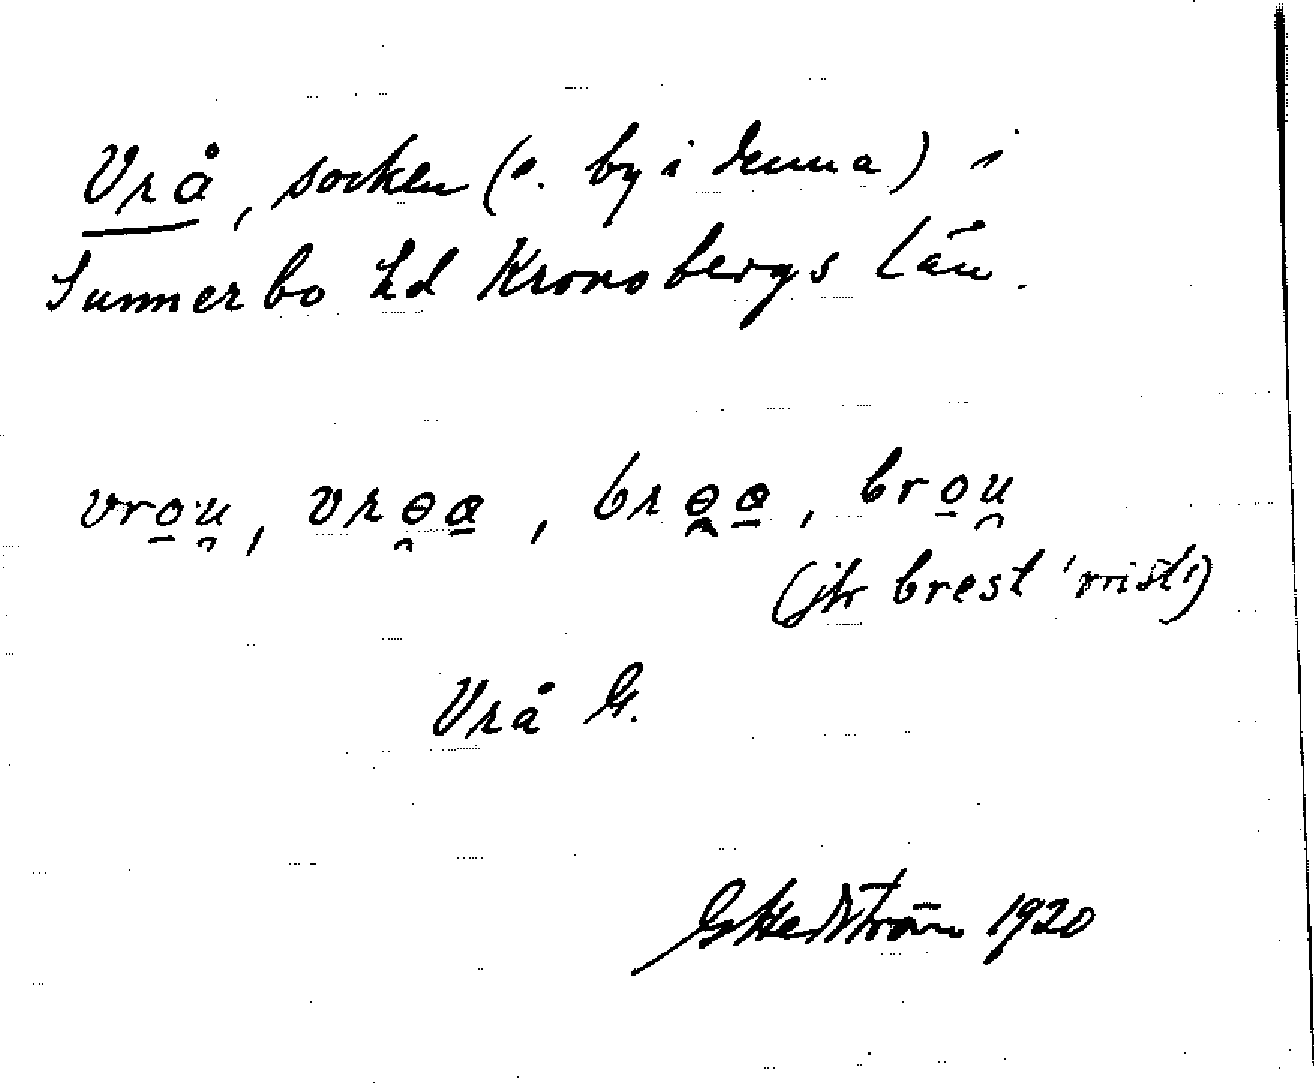 Vrå, socken (o. by i denna) i
Sunnerbo hd Kronobergs län.
vro̲u̯, vrɵ̯a̲, brɵ̯a̲, bro̲u̯
(jfr brest 'rist')
Vrå G.
G Hedström 1920